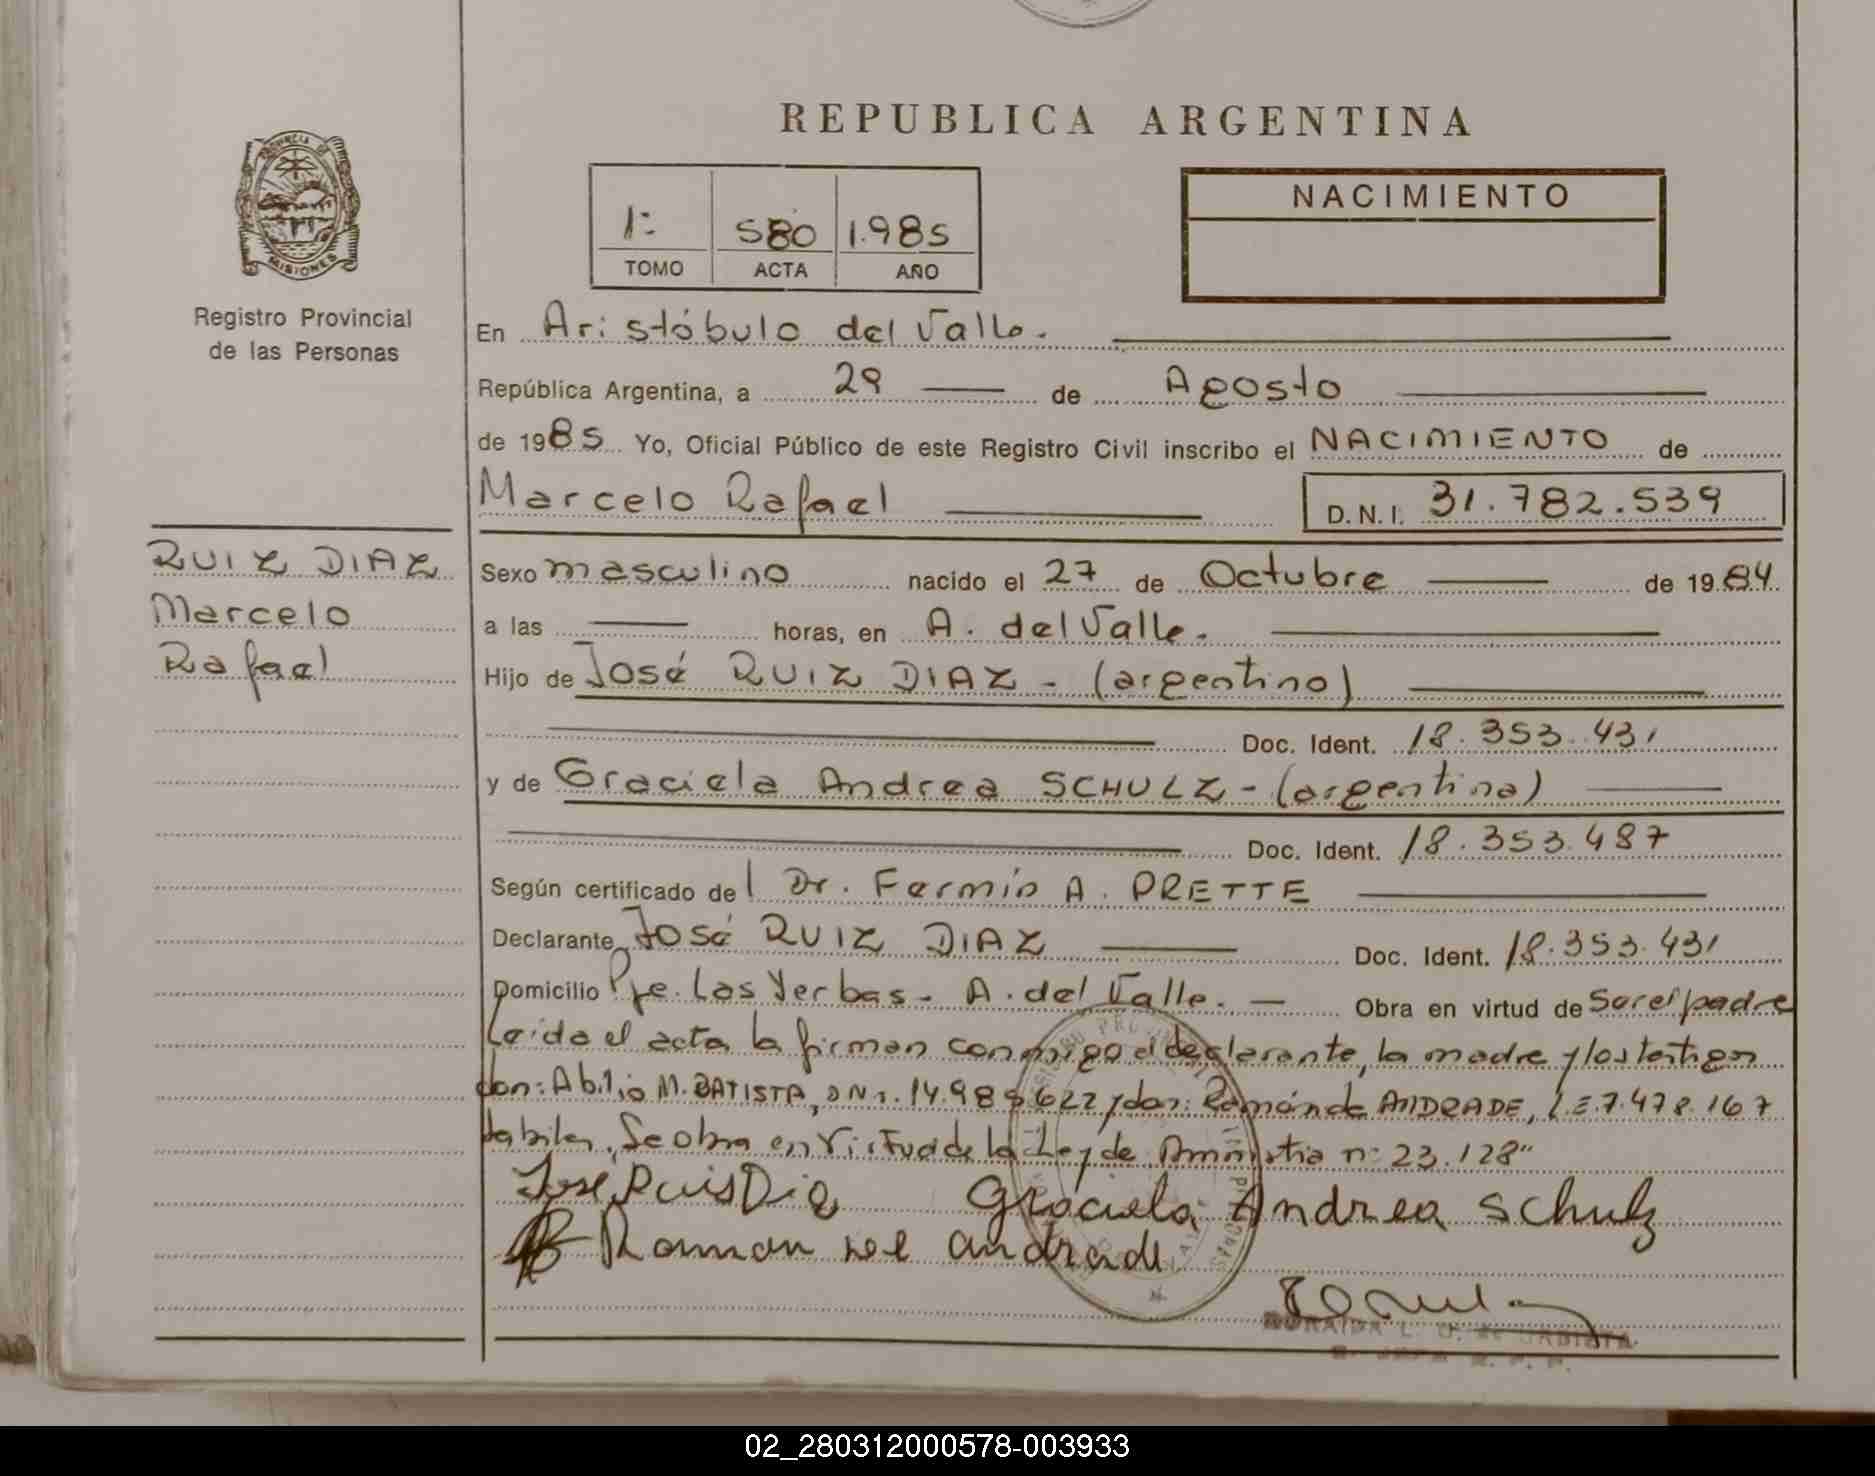 REPUBLICA ARGENTINA
PROVINCIA DE
MISIONES
Registro Provincial
de las Personas
1: 580 1.985
TOMO ACTA AÑO
NACIMIENTO
En Aristóbulo del Valle.
República Argentina, a 29 de Agosto
de 1985 Yo, Oficial Público de este Registro Civil inscribo el NACIMIENTO de
Marcelo Rafael D.N.I. 31.782.539
RUIZ DIAZ
Marcelo
Rafael
Sexo masculino nacido el 27 de Octubre de 1984
a las horas, en A. del Valle.
Hijo de José RUIZ DIAZ - (argentino)
Doc. Ident. 18.353.431
y de Graciela Andrea SCHULZ - (argentina)
Doc. Ident. 18.353.487
Según certificado del Dr. Fermín A. PRETTE
Declarante José RUIZ DIAZ Doc. Ident. 18.353.431
Domicilio Pje. Las Yerbas - A. del Valle. - Obra en virtud de Ser el padre
Leída el acta la firman conmigo el declarante, la madre y los testigos
don: Abilio M. BATISTA, DNI. 14.989622 y don: Ramón de ANDRADE, L.E. 7.478.167
habiles. Se obra en Virtud de la Ley de Amnistia n: 23.128"
Jose Ruis Dia Graciela Andrea Schulz
Roman del andrade
02_280312000578-003933